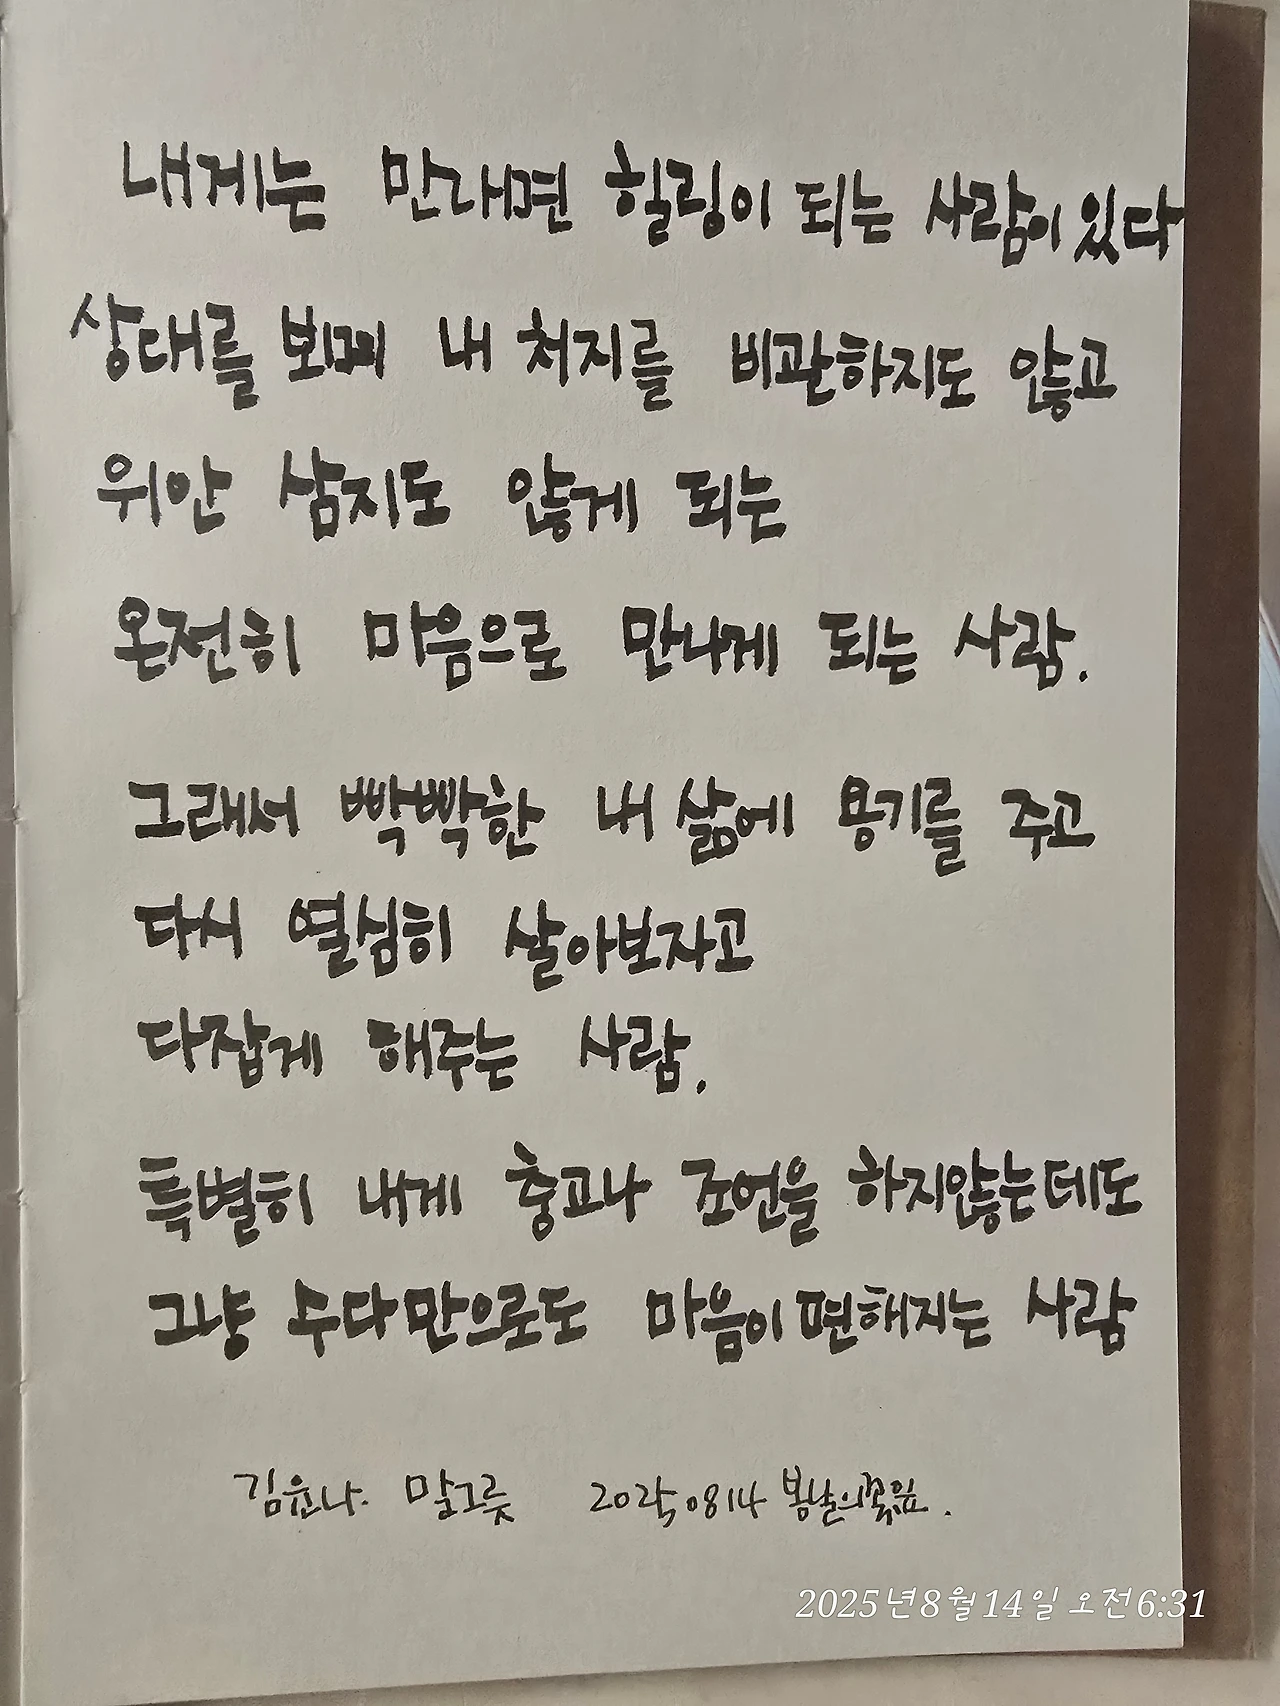 내게는 만나면 힐링이 되는 사람이 있다
상대를 보며 내 처지를 비관하지도 않고
위안 삼지도 않게 되는
온전히 마음으로 만나게 되는 사람.
그래서 빡빡한 내 삶에 용기를 주고
다시 열심히 살아보자고
다잡게 해주는 사람.
특별히 내게 충고나 조언을 하지않는데도
그냥 수다만으로도 마음이 편해지는 사람
김윤나. 말그릇 20250814 봄날의꽃잎.
2025년 8월 14일 오전 6:31